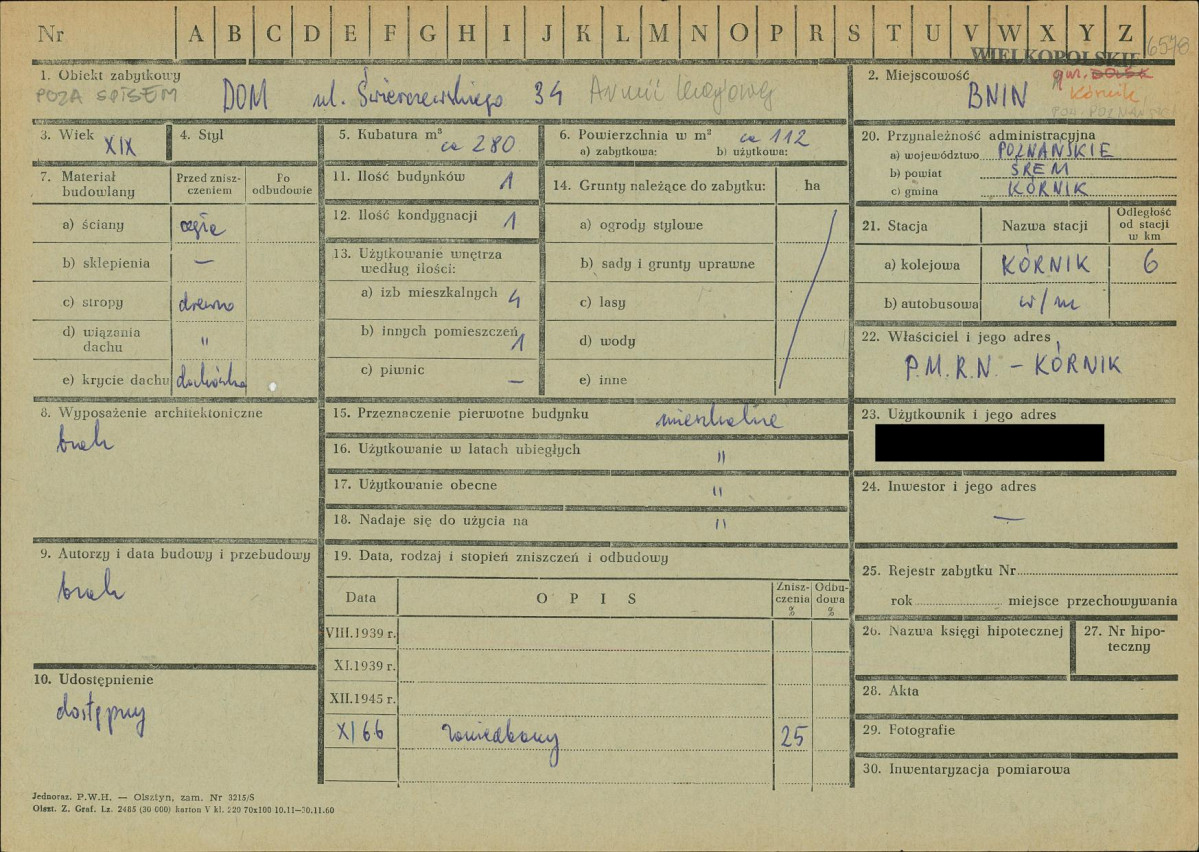 Nr A B C D E F G H I J K L M N O P R S T U V W X Y Z
WIELKOPOLSKIE 6578
1. Obiekt zabytkowy
POZA SPISEM
DOM ul. Świerczewskiego 34 Armii Krajowej
2. Miejscowość
gm.
BNIN
Kórnik
POW. POZNAŃ
3. Wiek XIX
4. Styl
5. Kubatura m³
ca 280
6. Powierzchnia w m² ca 112
a) zabytkowa: b) użytkowa:
7. Materiał budowlany
Przed zniszczeniem
Po odbudowie
a) ściany cegła
b) sklepienia —
c) stropy drewno
d) wiązania dachu "
e) krycie dachu dachówka
8. Wyposażenie architektoniczne
brak
9. Autorzy i data budowy i przebudowy
brak
10. Udostępnienie
dostępny
11. Ilość budynków 1
12. Ilość kondygnacji 1
13. Użytkowanie wnętrza
według ilości:
a) izb mieszkalnych 4
b) innych pomieszczeń 1
c) piwnic —
14. Grunty należące do zabytku: ha
a) ogrody stylowe
b) sady i grunty uprawne
c) lasy
d) wody
e) inne
15. Przeznaczenie pierwotne budynku mieszkalne
16. Użytkowanie w latach ubiegłych "
17. Użytkowanie obecne "
18. Nadaje się do użycia na "
19. Data, rodzaj i stopień zniszczeń i odbudowy
Data
O P I S
Zniszczenia %
Odbudowa %
VIII.1939 r.
XI.1939 r.
XII.1945 r.
XI 66 zaniedbany 25
20. Przynależność administracyjna
a) województwo POZNAŃSKIE
b) powiat ŚREM
c) gmina KÓRNIK
21. Stacja
Nazwa stacji
Odległość
od stacji
w km
a) kolejowa KÓRNIK 6
b) autobusowa w/m
22. Właściciel i jego adres
P.M.R.N. – KÓRNIK
23. Użytkownik i jego adres
24. Inwestor i jego adres
—
25. Rejestr zabytku Nr
rok miejsce przechowywania
26. Nazwa księgi hipotecznej
27. Nr hipoteczny
28. Akta
29. Fotografie
30. Inwentaryzacja pomiarowa
Jednoraz. P.W.H. — Olsztyn, zam. Nr 3215/S
Olszt. Z. Graf. Lz. 2485 (30 000) karton V kl. 220 70x100 10.11—30.11.60